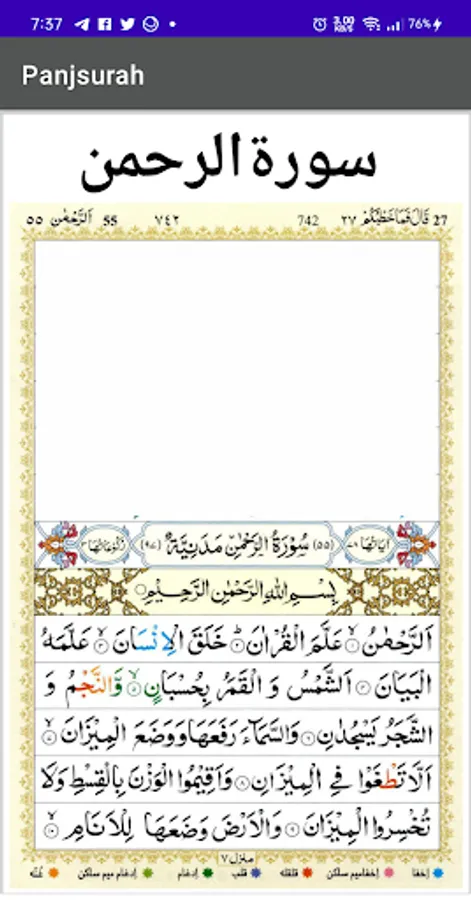 7:37 3.00 KB/S 76%
Panjsurah
سورة الرحمن
27 قَالَ فَمَا خَطْبُكُمْ ٢٧ 742 ٧٤٢ 55 اَلرَّحْمٰن ٥٥
اٰیَاتُهَا ٧٨ (٥٥) سُوْرَةُ الرَّحْمٰنِ مَدَنِيَّةٌ (٩٧) رُكُوْعَاتُهَا ٣
بِسْمِ اللّٰهِ الرَّحْمٰنِ الرَّحِيْمِ
اَلرَّحْمٰنُ ۙ۝١ عَلَّمَ الْقُرْاٰنَ ؕ۝٢ خَلَقَ الْاِنْسَانَ ۙ۝٣ عَلَّمَهُ
الْبَيَانَ ۝٤ اَلشَّمْسُ وَ الْقَمَرُ بِحُسْبَانٍ ۙ۝٥ وَّالنَّجْمُ وَ
الشَّجَرُ يَسْجُدٰنِ ۝٦ وَالسَّمَآءَ رَفَعَهَا وَوَضَعَ الْمِيْزَانَ ۙ۝٧
اَلَّا تَطْغَوْا فِي الْمِيْزَانِ ۝٨ وَاَقِيْمُوا الْوَزْنَ بِالْقِسْطِ وَلَا
تُخْسِرُوا الْمِيْزَانَ ۝٩ وَالْاَرْضَ وَضَعَهَا لِلْاَنَامِ ۙ۝١٠
منزل ٧
اخفا اخفا میم ساکن قلقله قلب ادغام ادغام میم ساکن غنّه